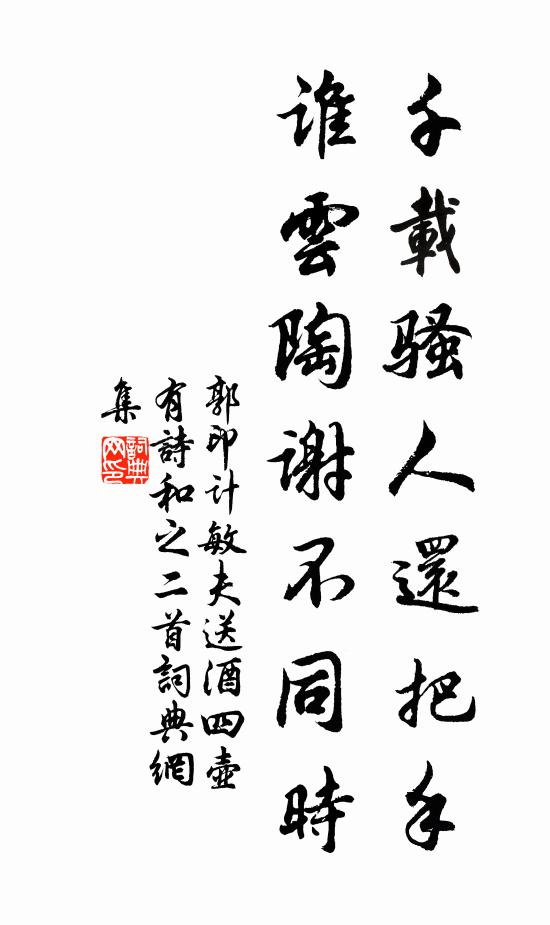 千載騷人還把手
誰雲陶謝不同時
郭印計敏夫送酒四壺
有詩和之二首詞典網
集
詞典網印